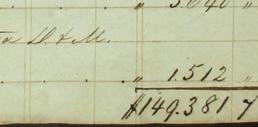 " 3640 "
D. & M.
" 1512 "
$149.381 7